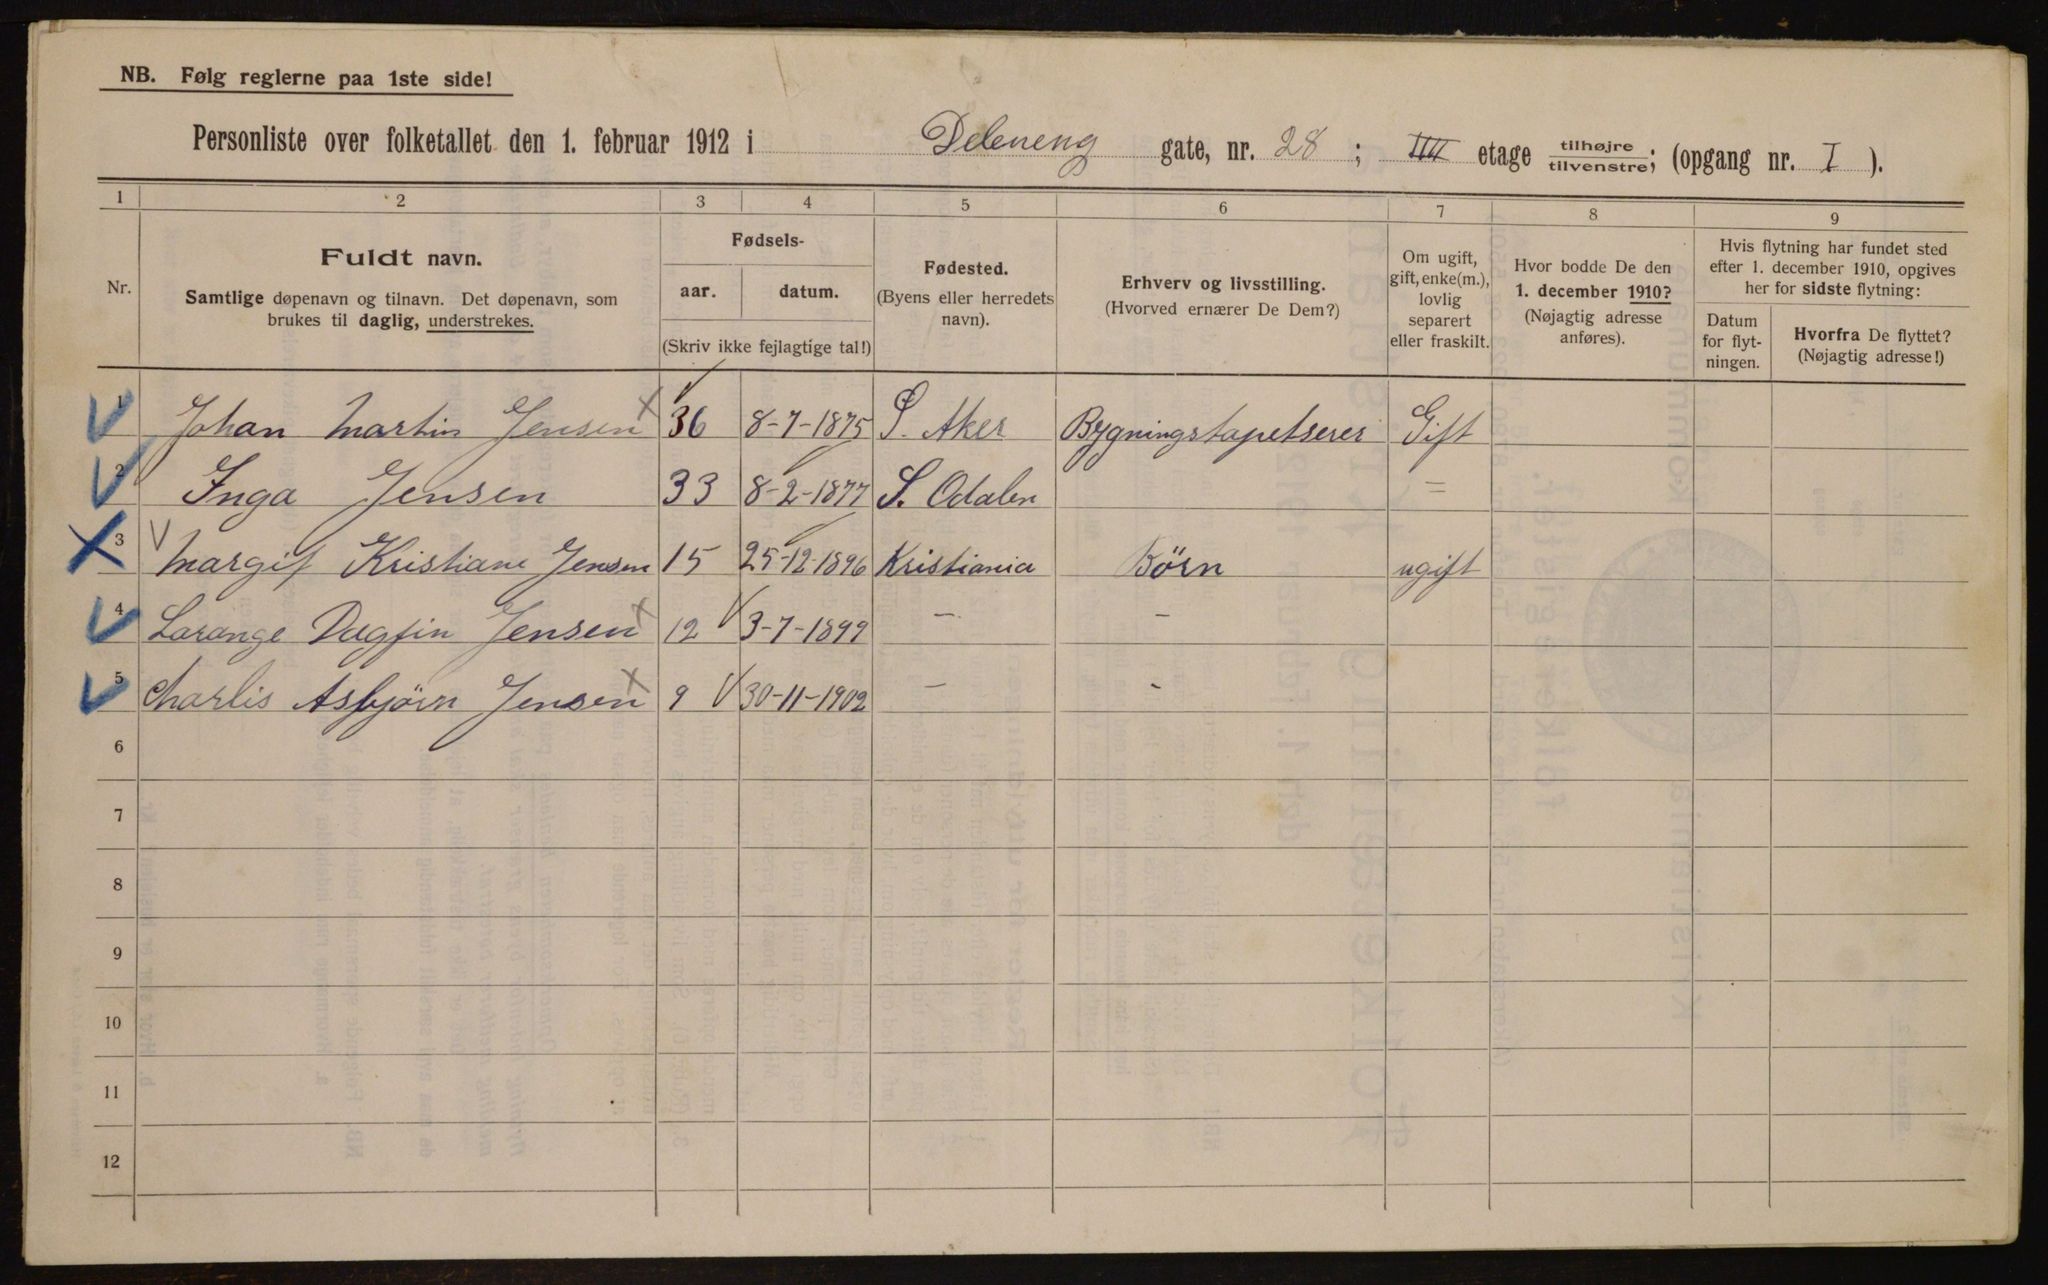 NB. Følg reglerne paa 1ste side!
Personliste over folketallet den 1. februar 1912 i Deleneng gate, nr. 28; IIII etage tilhøjre/tilvenstre; (opgang nr. I).
1 2 3 4 5 6 7 8 9
Nr.
Fuldt navn.
Samtlige døpenavn og tilnavn. Det døpenavn, som
brukes til daglig, understrekes.
Fødsels-
aar. datum.
(Skriv ikke fejlagtige tal!)
Fødested.
(Byens eller herredets
navn).
Erhverv og livsstilling.
(Hvorved ernærer De Dem?)
Om ugift,
gift, enke(m.),
lovlig
separert
eller fraskilt.
Hvor bodde De den
1. december 1910?
(Nøjagtig adresse
anføres).
Hvis flytning har fundet sted
efter 1. december 1910, opgives
her for sidste flytning:
Datum
for flyt-
ningen.
Hvorfra De flyttet?
(Nøjagtig adresse!)
1 Johan Martin Jensen 36 8-7-1875 Ø. Aker Bygningstapetserer Gift
2 Inga Jensen 33 8-2-1877 S. Odalen =
3 Margit Kristiane Jensen 15 25-12-1896 Kristiania Börn ugift
4 Lorange Dagfin Jensen 12 3-7-1899 — —
5 Charlis Asbjörn Jensen 9 30-11-1902 — -
6
7
8
9
10
11
12